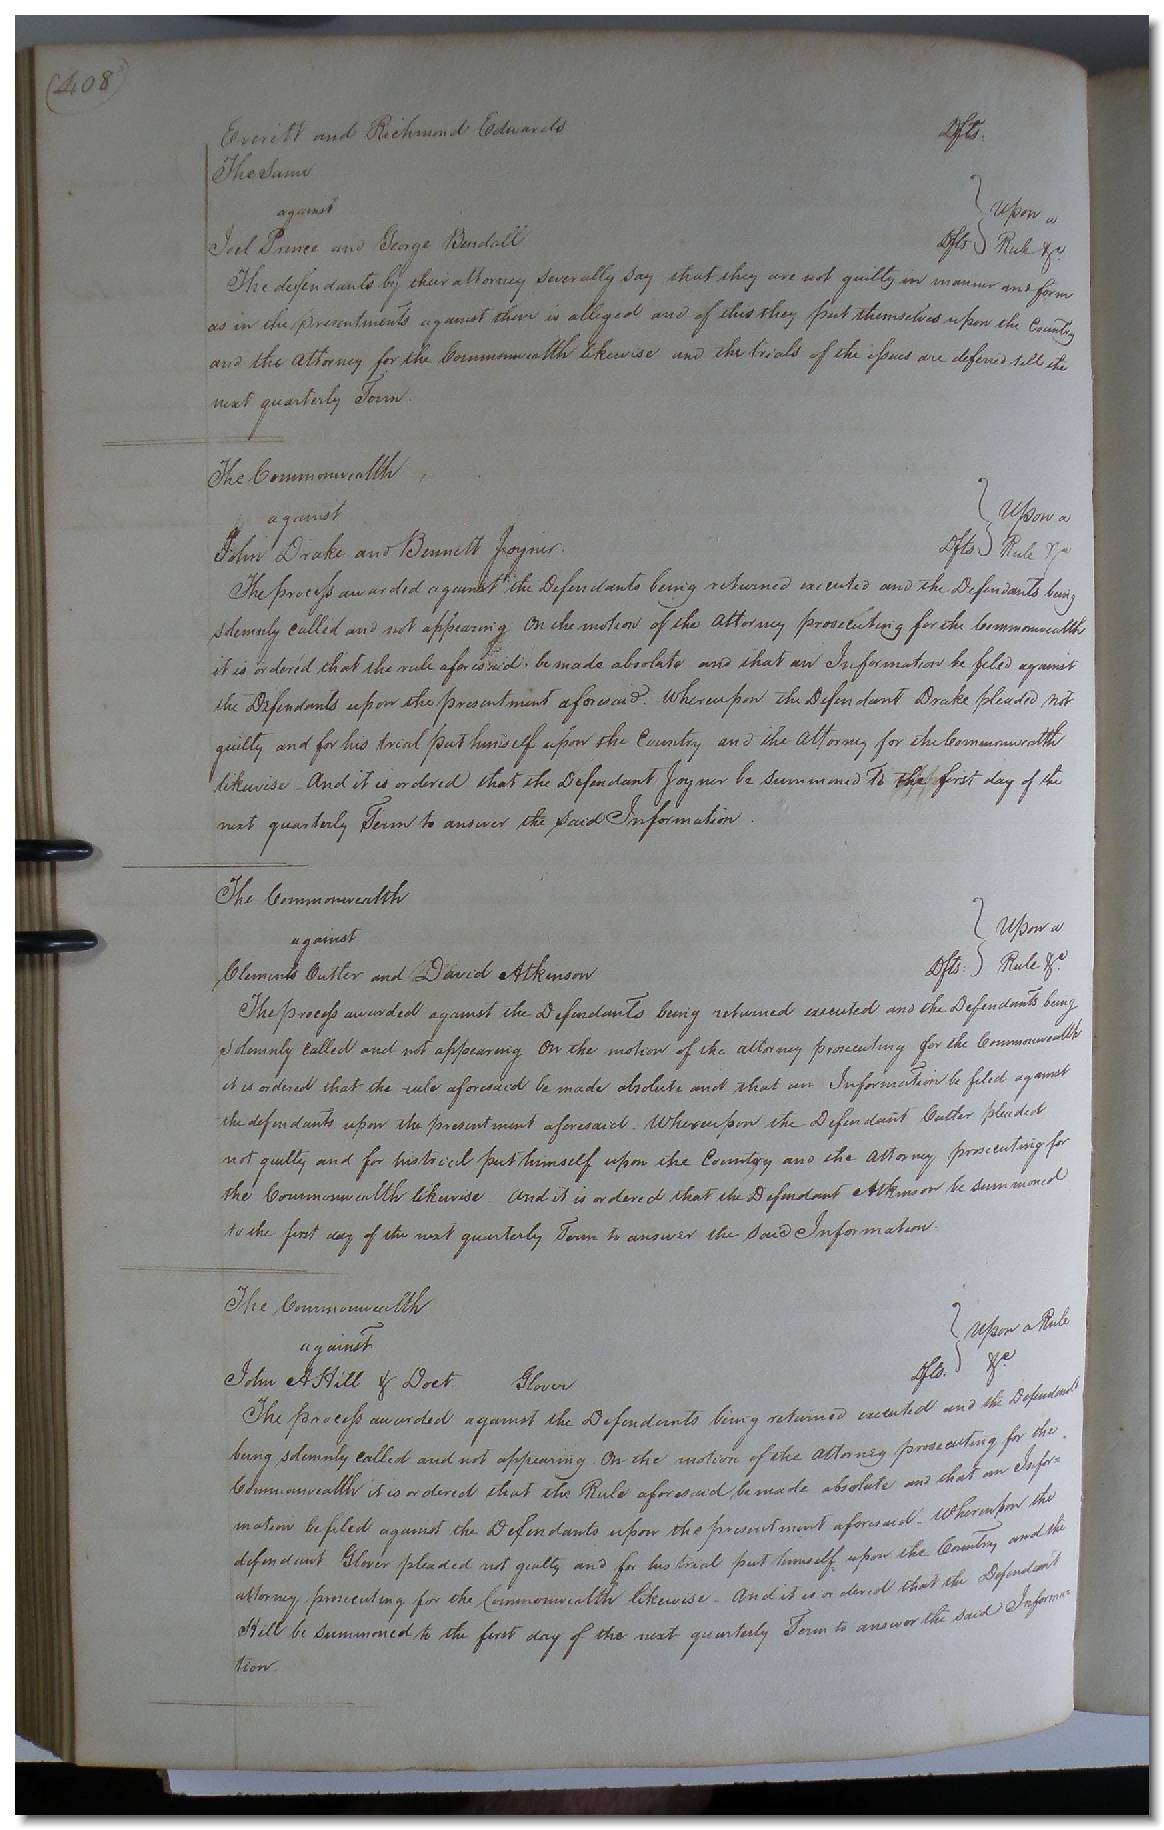 (408)
Everitt and Richmond Edwards Dfts.
The Same
against Upon a
Joel Prince and George Bendall Dfts Rule &c.
The defendants by their attorney severally say that they are not guilty in manner and form
as in the presentments against them is alleged and of this they put themselves upon the Country
and the Attorney for the Commonwealth likewise and the trials of the issues are deferred till the
next quarterly Term.
The Commonwealth
against Upon a
John Drake and Bennett Joyner. Dfts. Rule &c
The process awarded against the Defendants being returned executed and the Defendants being
solemnly called and not appearing On the motion of the Attorney prosecuting for the Commonwealth
it is ordered that the rule aforesaid be made absolute and that an Information be filed against
the Defendants upon the presentment aforesaid. Whereupon the Defendant Drake pleaded not
guilty and for his trial put himself upon the Country and the Attorney for the Commonwealth
likewise - And it is ordered that the Defendant Joyner be summoned to the first day of the
next quarterly Term to answer the said Information.
The Commonwealth
against Upon a
Clements Cutler and David Atkinson Dfts. Rule &c.
The process awarded against the Defendants being returned executed and the Defendants being
solemnly called and not appearing On the motion of the attorney prosecuting for the Commonwealth
it is ordered that the rule aforesaid be made absolute and that an Information be filed against
the defendants upon the presentment aforesaid - Whereupon the Defendant Cutler pleaded
not guilty and for his trial put himself upon the Country and the Attorney prosecuting for
the Commonwealth likewise And it is ordered that the Defendant Atkinson be summoned
to the first day of the next quarterly Term to answer the said Information.
The Commonwealth
against Upon a Rule
John A Hill & Doct. Glover Dfts. &c
The process awarded against the Defendants being returned executed and the Defendants
being solemnly called and not appearing On the motion of the Attorney prosecuting for the
Commonwealth it is ordered that the Rule aforesaid be made absolute and that an Infor-
mation be filed against the Defendants upon the presentment aforesaid - Whereupon the
defendant Glover pleaded not guilty and for his trial put himself upon the Country and the
attorney prosecuting for the Commonwealth likewise - And it is ordered that the Defendant
Hill be summoned to the first day of the next quarterly Term to answer the said Informa-
tion.